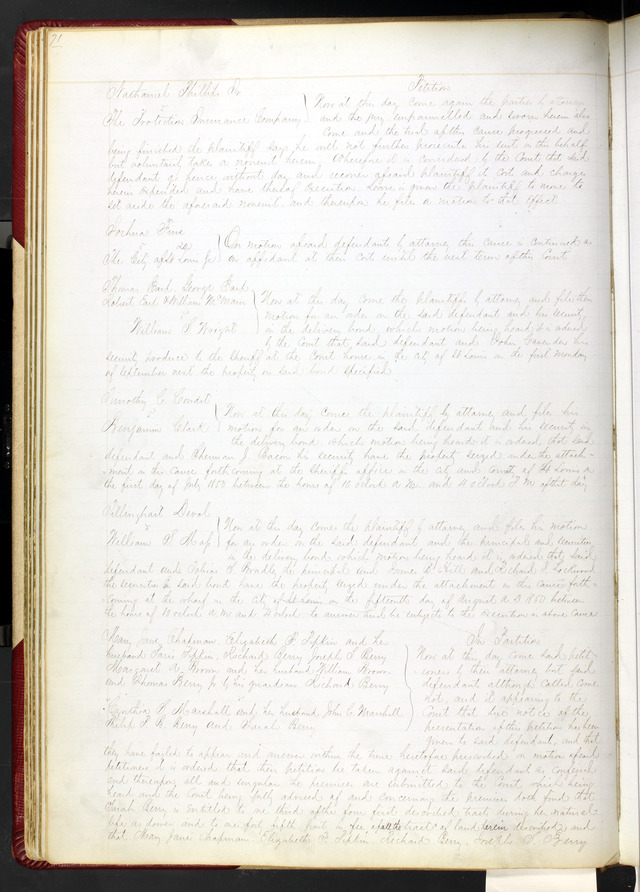 71
Nathaniel Phillips Petition
The Protection Insurance Company Now at this day come again the parties by attorneys
and the jury empannelled and sworn herein also
come and the trial of this cause progressed and
being finished the plaintiff says he will not further prosecute his suit in this behalf
but voluntarily take a nonsuit herein. Wherefore it is considered by the Court that said
defendant go hence without day and recover of said plaintiff its cost and charges
herein expended and have thereof execution. Leave is given the plaintiff to move to
set aside the aforesaid nonsuit, and thereupon he files a motion to that effect
Joshua
vs
The City of St Louis On motion of said defendant by attorney this cause is continued on
an affidavit at their cost until the next term of this Court
Thomas Earl George Earl
Robert Earl & William Now at this day come the plaintiffs by attorney and file their
vs motion for an order on the said defendant and his security
William S. Wright in the delivery bond, which motion being heard it is ordered
by the Court that said defendant and John his
security produce to the Sheriff at the Court house in the City of St Louis on the first Monday
of September next the property in said bond specified
Timothy C.
vs
Benjamin Clark Now at this day comes the plaintiff by attorney and files his
motion for an order on the said defendant and his security in
the delivery bond which motion being heard it is ordered that said
defendant and Sherman J. Bacon his security have the property seized under the attach-
ment in this cause forthcoming at the Sheriff office in the City and County of St Louis on
the first day of July 1850 between the hours of 10 oclock A M and 4 oclock P M of that day
vs
William T. Now at this day comes the plaintiff by attorney and files his motion
for an order on the said defendant and the principal and securities
in the delivery bond which motion being heard it is ordered that said
defendant and the principal and James Hill and Richard J. Lockwood
the securities in said bond have the property seized under the attachment in this cause forth-
coming at the wharf in the City of St Louis on the fifteenth day of August A D 1850 between
the hours of 10 oclock A M and to answer and be subject to the execution in above cause
Mary Jane Chapman, Elizabeth F and her In Partition
husband, Richard Berry, Joseph S. Berry Now at this day come said petit-
Margaret A Brown and her husband William Brown ioners by their attorney but said
and Thomas Berry by his guardian Richard Berry defendants although called come
vs not, and it appearing to the
Cynthia A Marshall and her husband John C. Marshall Court that due notice of the
Philip T. Berry and Sarah Berry presentation of this petition has been
given to said defendants, and that
they have failed to appear and answer within the time heretofore prescribed on motion of said
petitioners it is ordered that their petition be taken against said defendants as confessed
and thereupon all and singular the premises are submitted to the Court, which being
heard and the Court being fully advised of and concerning the premises doth find that
Sarah Berry is entitled to one third of the first described tract during her natural
life as dower and to one fifth part in fee of all the tract of land herein described and
that Mary Jane Chapman, Elizabeth F. Richard Berry, Joseph S. Berry